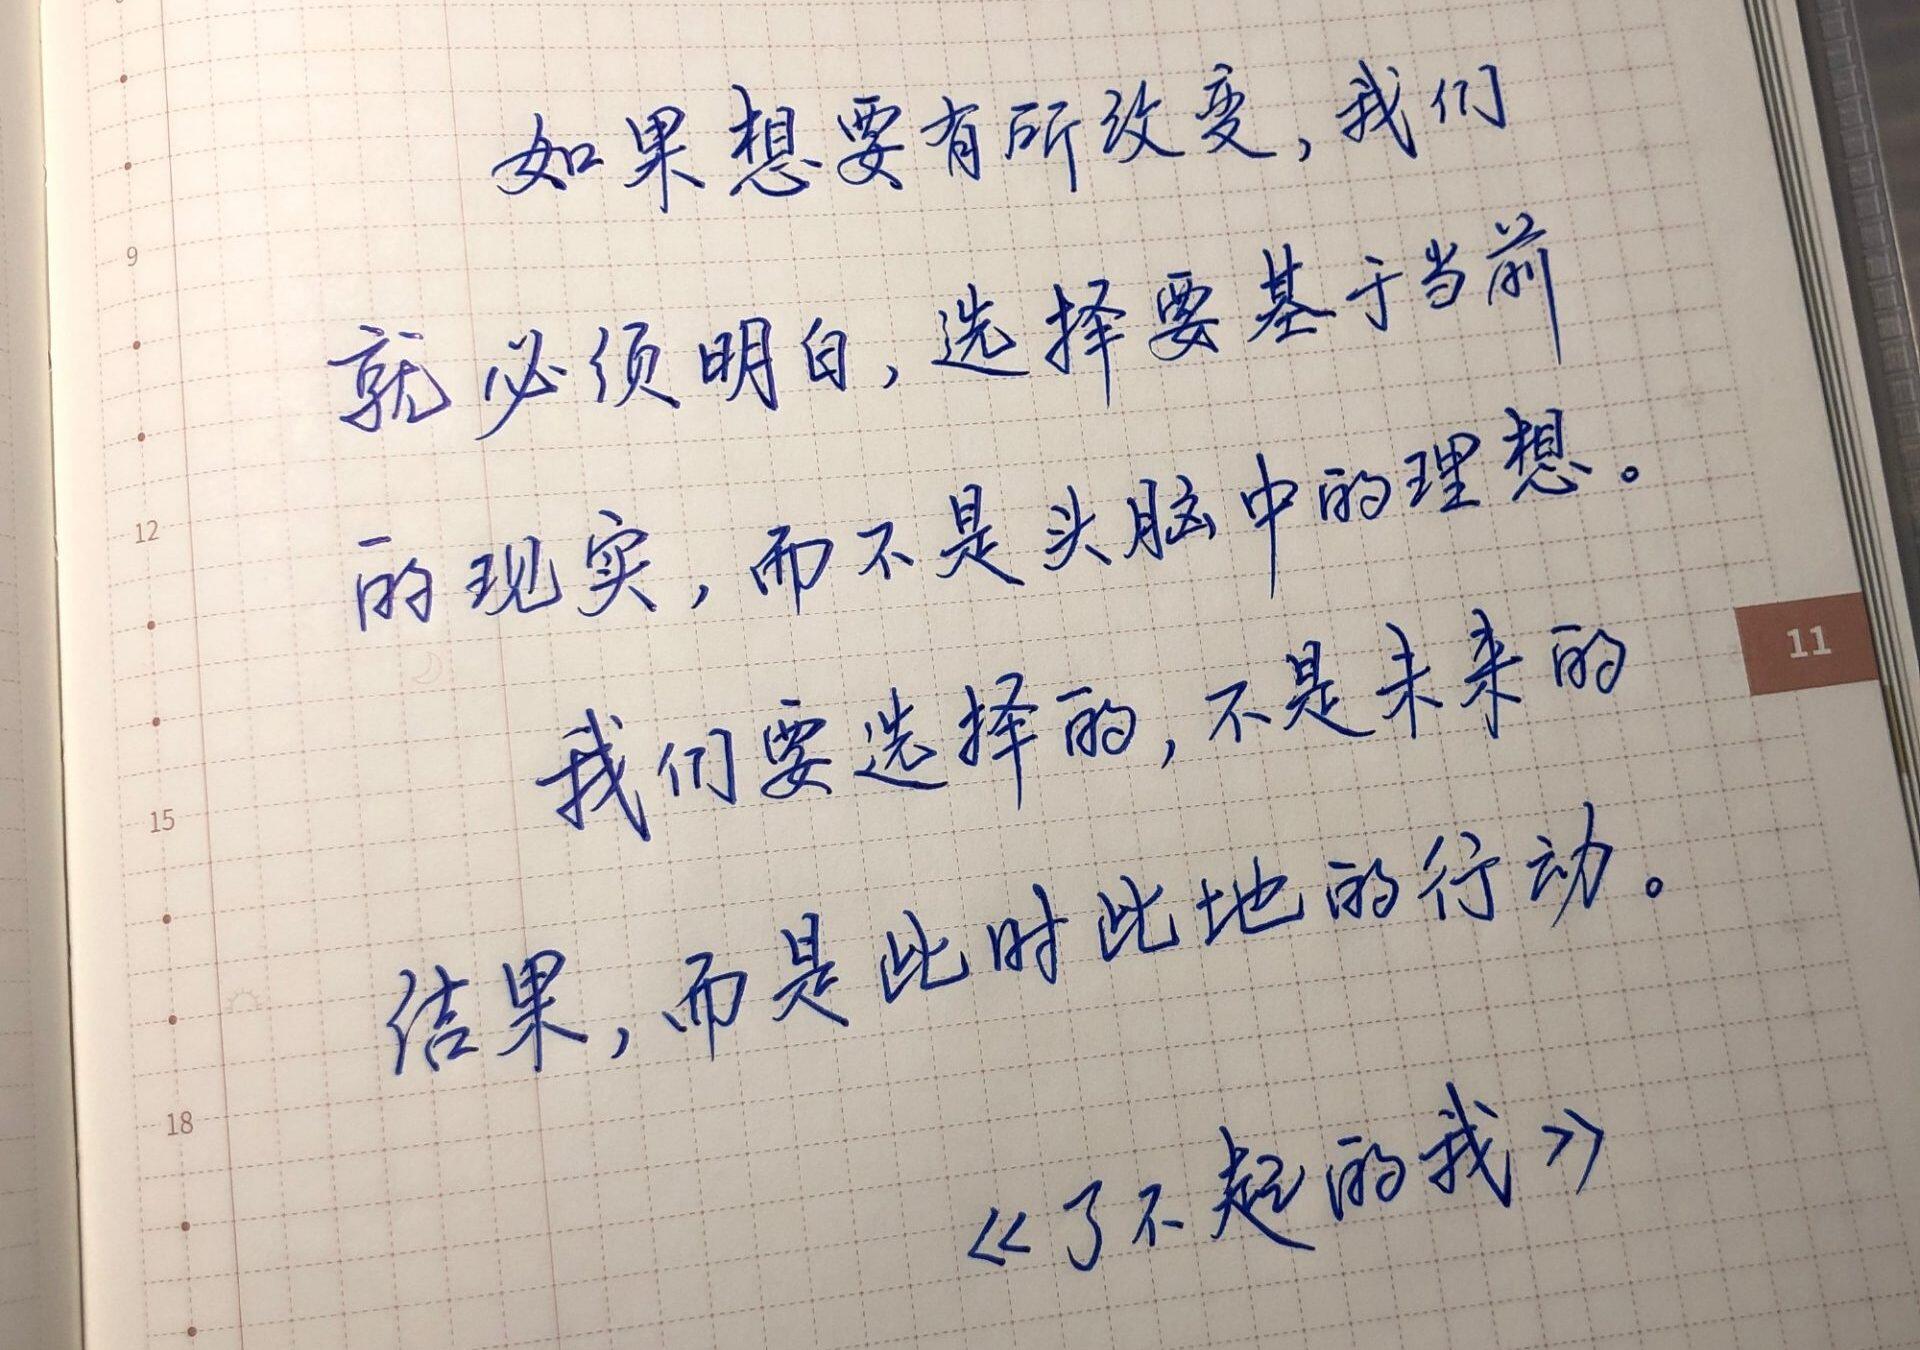 如果想要有所改变，我们
就必须明白，选择要基于当前
的现实，而不是头脑中的理想。
我们要选择的，不是未来的
结果，而是此时此地的行动。
《了不起的我》
9
12
15
18
11